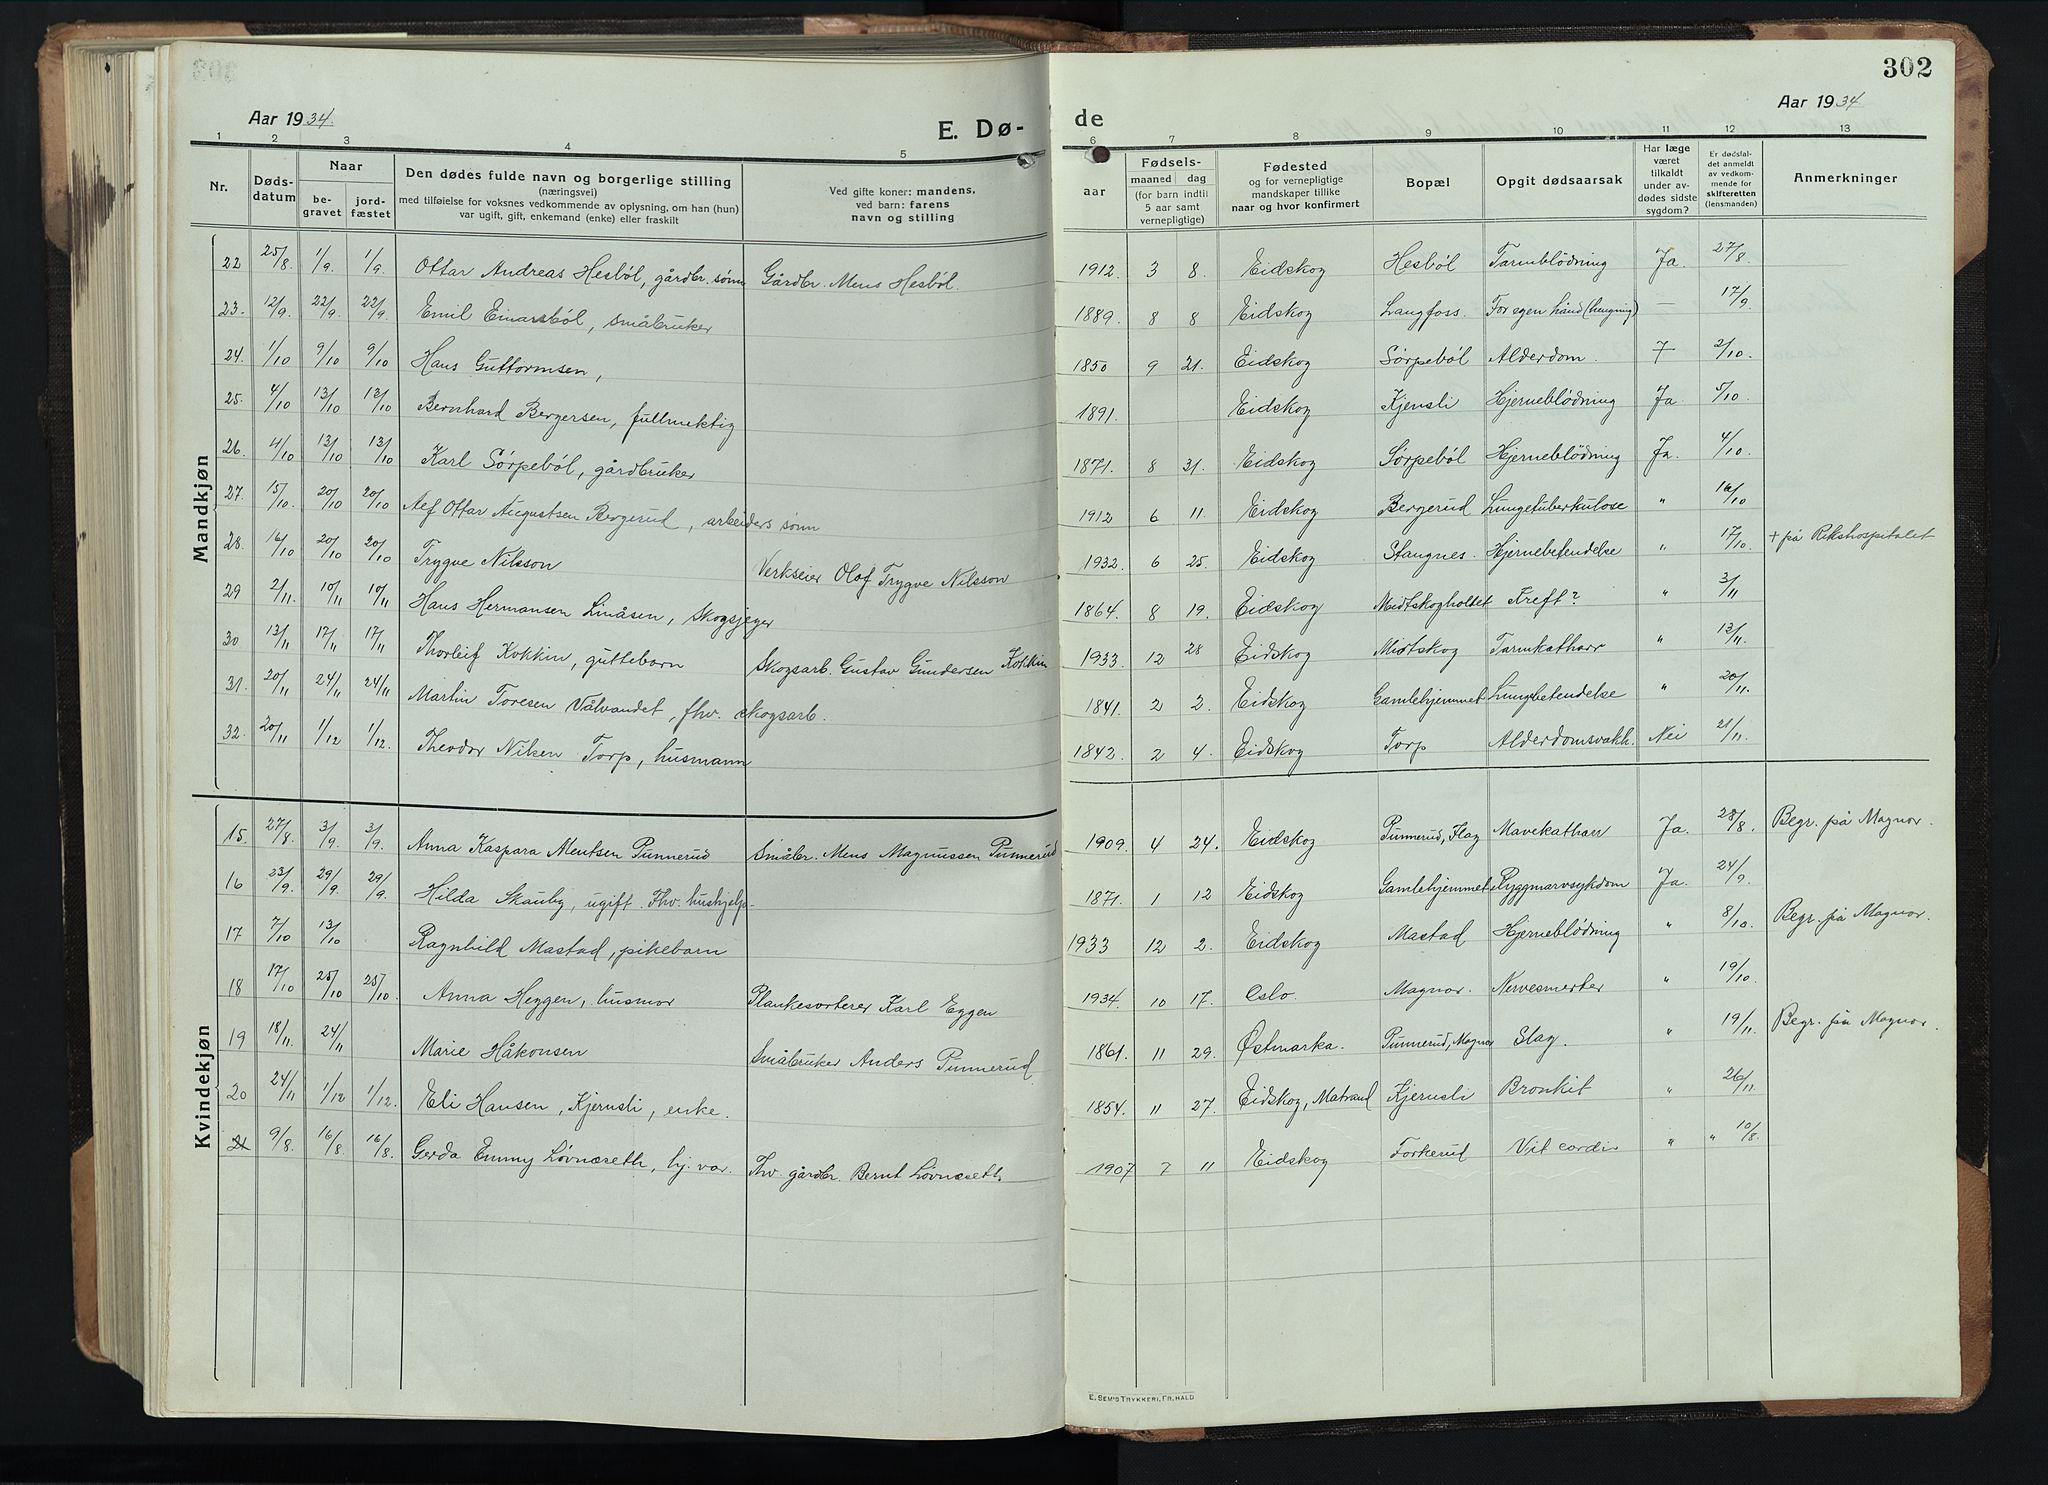 302
Aar 1934.
Aar 1934
E. Dø-
de
1 2 3 4 5 6 7 8 9 10 11 12 13
Nr. | Døds-datum | Naar begravet | jordfæstet | Den dødes fulde navn og borgerlige stilling (næringsvei) med tilføielse for voksnes vedkommende av oplysning, om han (hun) var ugift, gift, enkemand (enke) eller fraskilt | Ved gifte koner: mandens, ved barn: farens navn og stilling | aar | Fødsels- maaned dag (for barn indtil 5 aar samt vernepligtige) | Fødested og for vernepligtige mandskaper tillike naar og hvor konfirmert | Bopæl | Opgit dødsaarsak | Har læge været tilkaldt under avdødes sidste sygdom? | Er dødsfaldet anmeldt av vedkommende for skifteretten (lensmanden) | Anmerkninger
Mandkjøn
22 25/8 1/9 1/9 Ottar Andreas Hesböl, gårdbr. sønn Gårdbr. Mens Hesböl. 1912. 3 8. Eidskog Hesböl Tarmblödning Ja. 27/8
23. 12/9 22/9 22/9 Emil Einarsböl, småbruker 1889. 8 8 Eidskog Langfoss. For egen hånd (hengning) — 17/9
24. 1/10 9/10 9/10 Hans Guttormsen, 1850 9 21. Eidskog Sørpeböl Alderdom. 2/10
25. 4/10 13/10 13/10 Bernhard Bergersen, fullmektig 1891. Eidskog Kjensli Hjerneblödning Ja 5/10
26. 4/10 13/10 13/10 Karl Sørpeböl, gårdbruker 1871. 8 31. Eidskog Sørpeböl Hjerneblödning Ja. 4/10
27. 15/10 20/10 20/10 Alf Ottar Augustsen Bergerud, arbeiders sønn 1912 6 11. Eidskog Bergerud Lungetuberkulose " 16/10
28. 16/10 20/10 20/10 Trygve Nilsson Verkseier Olof Trygve Nilsson 1932. 6 25. Eidskog Stangnes. Hjernebetendelse " 17/10. + på Rikshospitalet
29 2/11. 10/11 10/11 Hans Hermansen Linåsen, skogsjeger 1864. 8 19. Eidskog Midtskogholtet Kreft? " 3/11
30 13/11 17/11 17/11 Thorleif Kokkin, guttebarn Skogsarb. Gustav Gundersen Kokkin 1933. 12 28 Eidskog Midtskog Tarmkatharr " 13/11.
31. 20/11 24/11 24/11 Martin Toresen Vålvandet, fhv. skogsarb. 1841. 2 2. Eidskog Gamlehjemmet Lungebetendelse " 20/11.
32. 20/11 1/12 1/12. Theodor Nilsen Torp, husmann 1842. 2 4. Eidskog Torp Alderdomsvakh. Nei 21/11.
Kvindekjøn
15. 27/8 3/9. 3/9. Anna Kaspara Mentsen Punnerud Småbr. Mens Magnussen Punnerud 1909. 4 24. Eidskog Punnerud, Flag Mavekatharr Ja. 28/8. Begr. på Magnor.
16 23/9. 29/9. 29/9. Hilda Skauby, ugift. Fhv. hushjelp. 1871. 1 12 Eidskog Gamlehjemmet Ryggmarvsykdom Ja. 24/9.
17 7/10 13/10 Ragnhild Mastad, pikebarn 1933 12 2. Eidskog Mastad Hjerneblödning " 8/10. Begr. på Magnor.
18 17/10 25/10 25/10. Anna Heggen, husmor Plankesorterer Karl Eggen 1934. 10 17. Oslo. Magnor. Nervesmerter " 19/10.
19 18/11. 24/11 Marie Håkonsen Småbruker Anders Punnerud 1861. 11 29. Østmarka. Punnerud, Magnor Slag. " 19/11. Begr. på Magnor.
20 24/11 1/12 1/12. Eli Hansen, Kjernsli, enke. 1854. 11 27. Eidskog, Matrand Kjernsli Bronkit " 26/11
21 9/8. 16/8 16/8. Gerda Emmy Lövnæseth, hj. var. Fhv. gårdbr. Bernt Lövnæseth. 1907 7 11 Eidskog Forkerud Vit cordis " " 10/8.
E. SEM'S TRYKKERI, FR.HALD